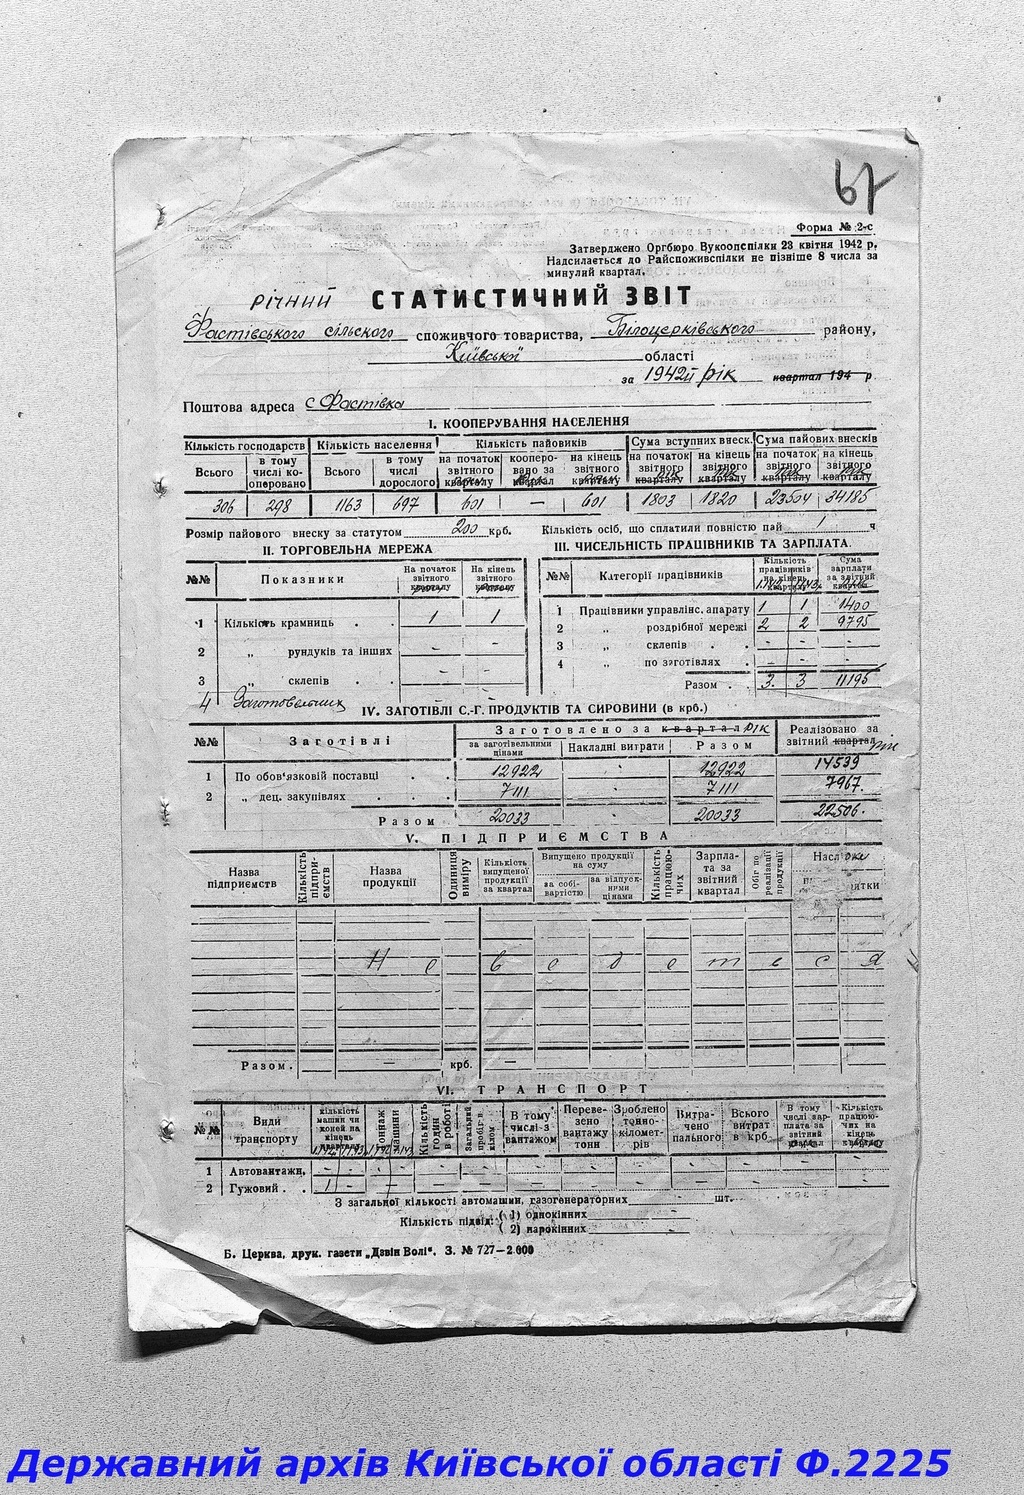 67
Форма № 2-с
Затверджено Оргбюро Вукоопспілки 23 квітня 1942 р.
Надсилається до Райспоживспілки не пізніше 8 числа за
минулий квартал.
річний СТАТИСТИЧНИЙ ЗВІТ
Фастівського сільського споживчого товариства, Білоцерківського району,
Київської области
за 1942й рік квартал 194 р
Поштова адреса с Фастівка
I. КООПЕРУВАННЯ НАСЕЛЕННЯ
Кількість господарств Кількість населення Кількість пайовиків Сума вступних внеск. Сума пайових внесків
Всього в тому числі кооперовано Всього в тому числі дорослого на початок звітного кварталу кооперовано за квартал на кінець звітного кварталу на початок звітного кварталу на кінець звітного кварталу на початок звітного кварталу на кінець звітного кварталу
306 298 1163 697 601 — 601 1803 1820 23504 34185
Розмір пайового внеску за статутом 200 крб. Кількість осіб, що сплатили повністю пай 1 ч
II. ТОРГОВЕЛЬНА МЕРЕЖА
№№ Показники На початок звітного кварталу На кінець звітного кварталу
1 Кількість крамниць . . 1 1
2 „ рундуків та інших - -
3 „ склепів . . - -
4 Заготовельних
III. ЧИСЕЛЬНІСТЬ ПРАЦІВНИКІВ ТА ЗАРПЛАТА.
№№ Категорії працівників Кількість працівників на кінець кварталу Сума зарплати за звітний
1 Працівники управлінс. апарату 1 1 1400
2 „ роздрібної мережі 2 2 9795
3 „ склепів . . - - -
4 „ по заготівлях . - - -
Разом . . 3. 3 11195
IV. ЗАГОТІВЛІ С.-Г. ПРОДУКТІВ ТА СИРОВИНИ (в крб.)
№№ Заготівлі Заготовлено за квартал рік Реалізовано за звітний квартал рік
за заготівельними цінами Накладні витрати Разом
1 По обов'язковій поставці . . 12922 - 12922 14539
2 „ дец. закупівлях . . . . 7111 - 7111 7967.
Разом 20033 20033 22506.
V. ПІДПРИЄМСТВА
Назва підприємств Кількість підприємств Назва продукції Одиниця виміру Кількість випущеної продукції за квартал Випущено продукції на суму Кількість працюючих Зарплата за звітний квартал Обіг по реалізації продукції
за собівартістю за відпускними цінами
Не ведеться
Разом. — крб. —
VI. ТРАНСПОРТ
№№ Види транспорту Кількість машин чи коней на кінець кварталу Тоннаж машини Кількість годин в роботі Загальний пробіг в кілом В тому числі з вантажом Перевезено вантажу тонн Зроблено тонно-кілометрів Витрачено пального Всього витрат в крб. В тому числі зарплата за звітний квартал Кількість працюючих на кінець кварталу
1 Автовантажн. - - - - - - - - - - - -
2 Гужовий . . 1 - - - - - - - - - - -
З загальної кількости автомашин, газогенераторних шт.
Кількість підвід: (1) однокінних
(2) парокінних
Б. Церква, друк. газети „Дзвін Волі". З. № 727—2.000
Державний архів Київської області Ф.2225